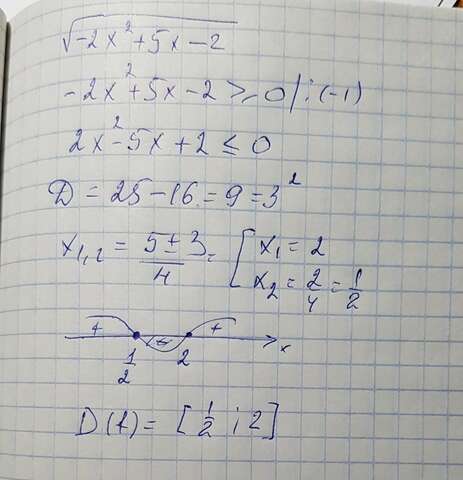 √(-2x²+5x-2)
-2x²+5x-2 ≥ 0 | : (-1)
2x²-5x+2 ≤ 0
D = 25-16 = 9 = 3²
x₁,₂ = (5±3)/4 = [ x₁ = 2
x₂ = 2/4 = 1/2
+ - + x
1/2 2
D(f) = [1/2 ; 2]